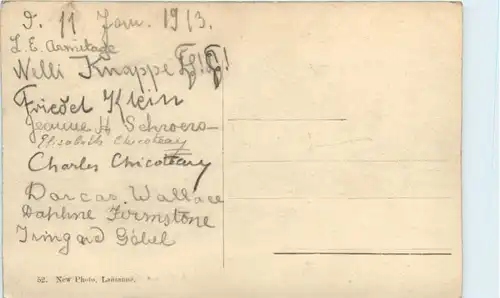 d. 11 Jan. 1913.
L. E. Armitage
Willi Knappe
Friedel Klein
Jeanne H Schroers
Elisabeth Chicoteau
Charles Chicoteau
Dorcas Wallace
Daphne Firmstone
Irmgard Göbel
52. New Photo, Lausanne.